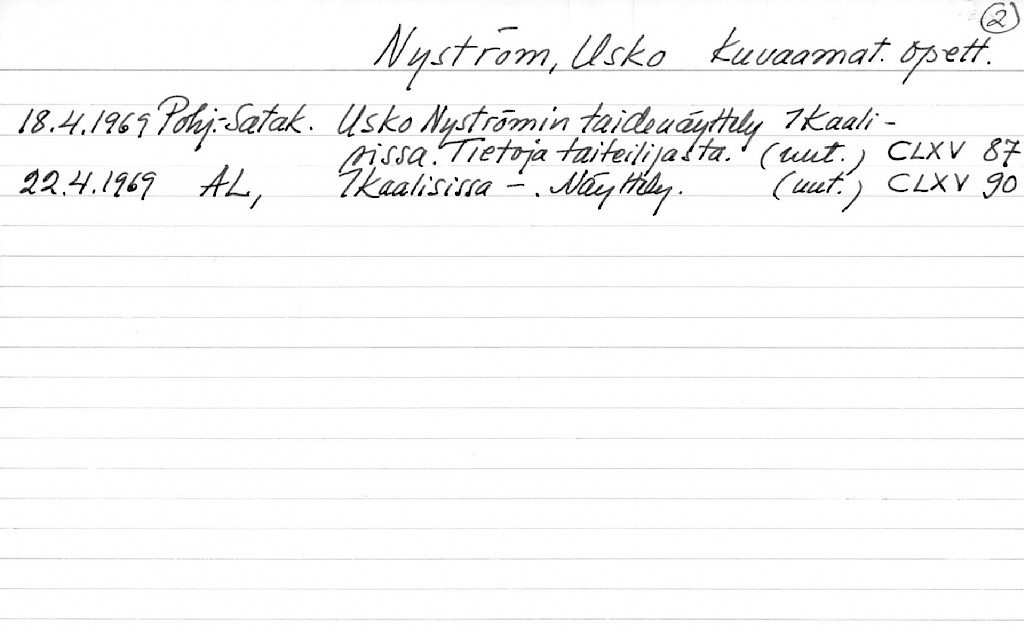 2
Nyström, Usko Kuvaamat. opett.
18.4.1969 Pohj.-Satak. Usko Nyströmin taidenäyttely Ikaali-
sissa. Tietoja taiteilijasta. (uut.) CLXV 87
22.4.1969 AL, Ikaalisissa -. Näyttely. (uut.) CLXV 90